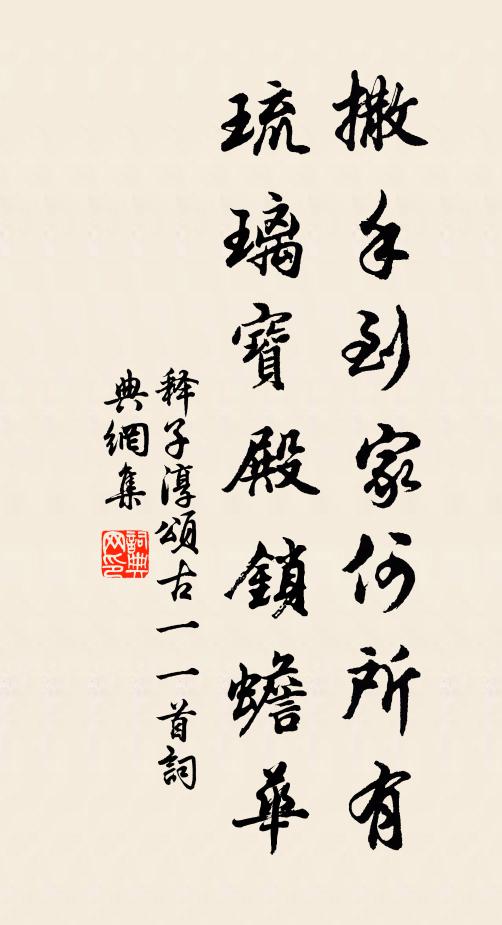 撒手到家何所有
琉璃寶殿鎖蟾華
释子淳頌古一一首詞
典網集
詞典
网印